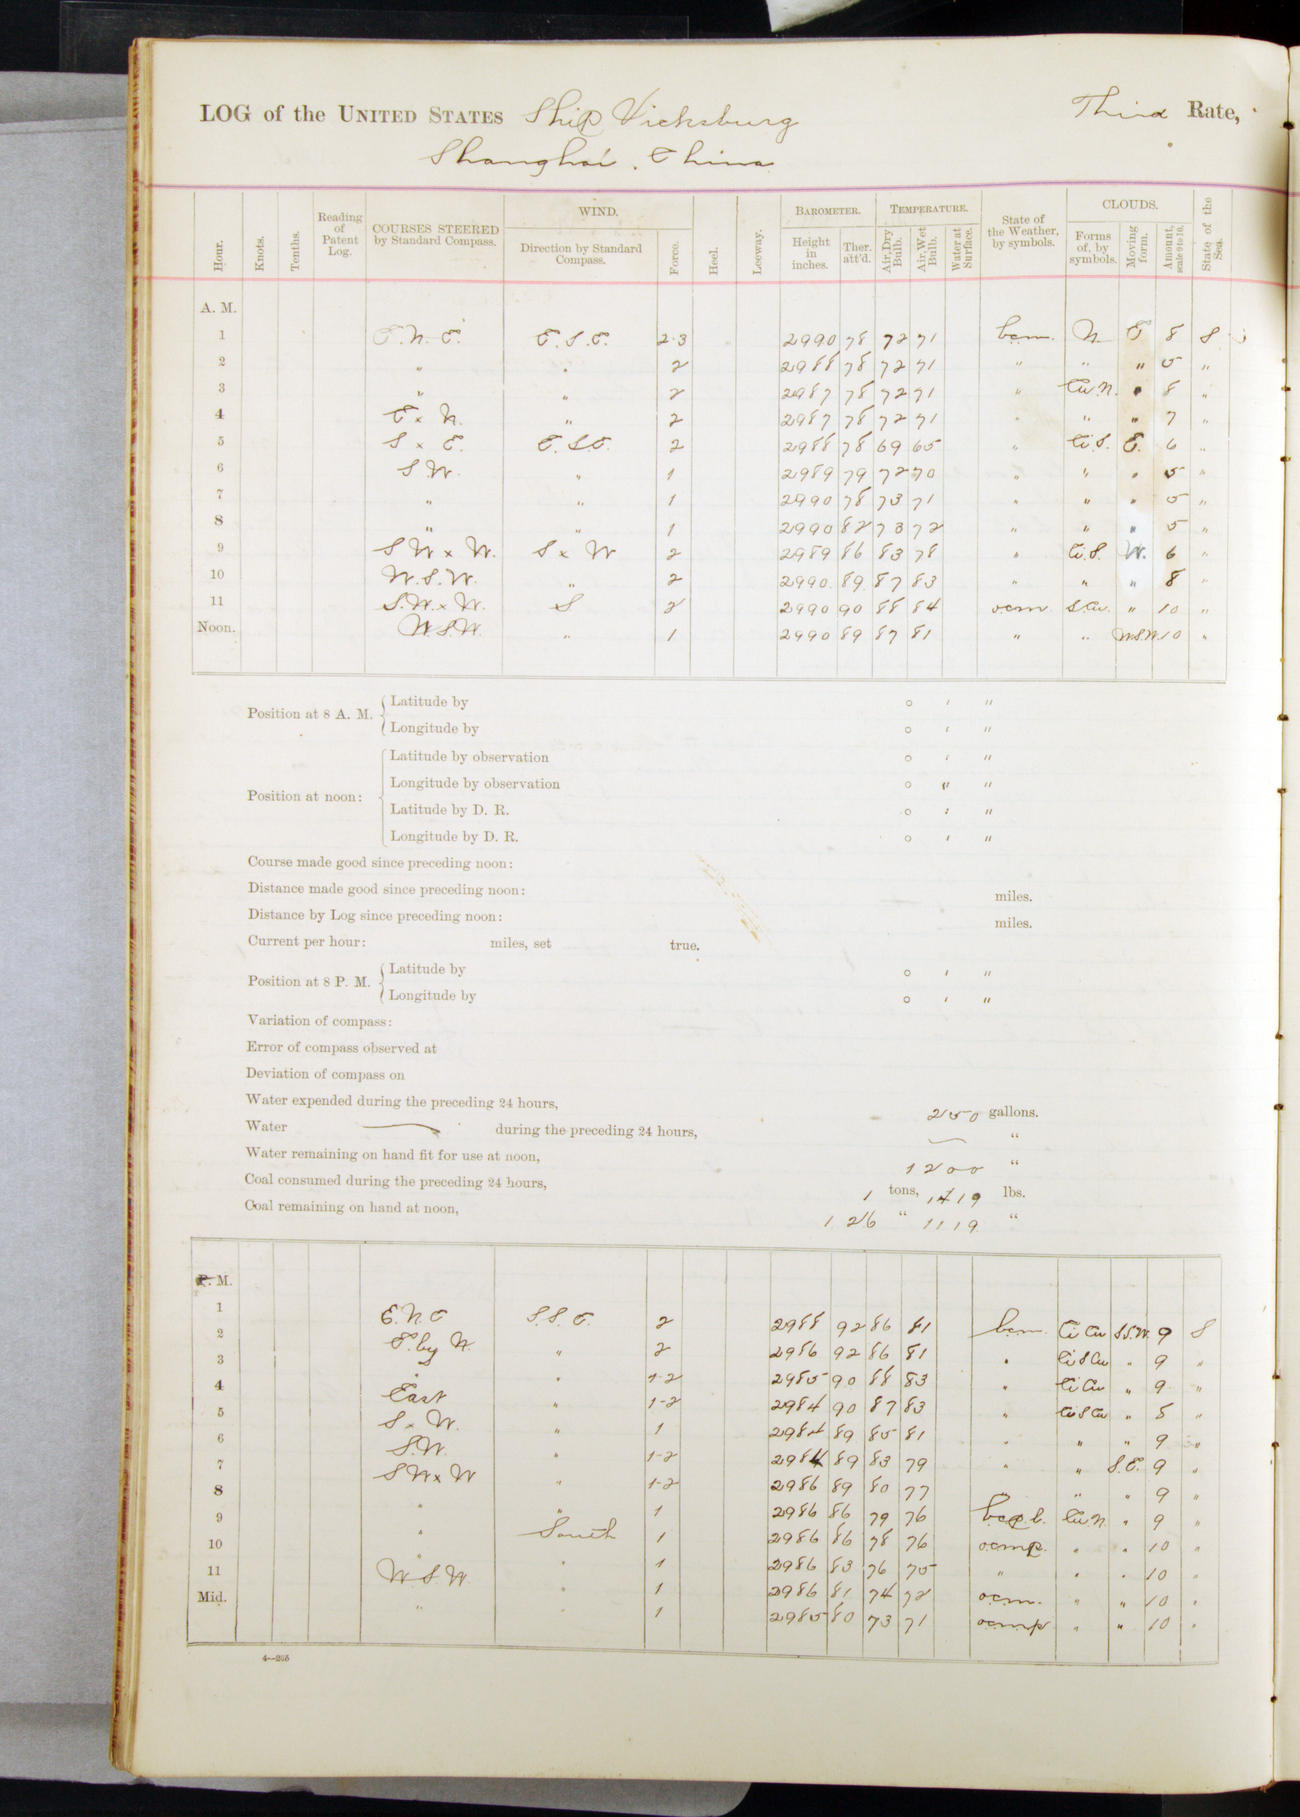 LOG of the UNITED STATES Ship Vicksburg Third Rate,
Shanghai. China
Hour. Knots. Tenths. Reading of Patent Log. COURSES STEERED by Standard Compass. WIND. Direction by Standard Compass. Force. Heel. Leeway. BAROMETER. Height in inches. Ther. att'd. TEMPERATURE. Air, Dry Bulb. Air, Wet Bulb. Water at Surface. State of the Weather, by symbols. CLOUDS. Forms of, by symbols. Moving form. Amount, scale 0 to 10. State of the Sea.
A. M.
1 E.N.E. E.S.E. 2-3 2990 78 72 71 bcm. N E 8 S
2 " " 2 2988 78 72 71 " " " 5 "
3 " " 2 2987 78 72 71 " Cu.N. " 8 "
4 E x N. " 2 2987 78 72 71 " " " 7 "
5 S x E. E.S.E. 2 2988 78 69 65 " Ci.S. E. 6 "
6 S W. " 1 2989 79 72 70 " " " 5 "
7 " " 1 2990 78 73 71 " " " 5 "
8 " " 1 2990 82 73 72 " " " 5 "
9 S W x W. S x W 2 2989 86 83 78 " Ci.S. W. 6 "
10 W.S.W. " 2 2990. 89. 87 83 " " " 8 "
11 S.W. x W. S 2 2990 90 88 84 ocm S.Cu. " 10 "
Noon. W.S.W. " 1 2990 89 87 81 " " W.S.W. 10 "
Position at 8 A. M. Latitude by ° ' "
Longitude by ° ' "
Position at noon: Latitude by observation ° ' "
Longitude by observation ° " "
Latitude by D. R. ° ' "
Longitude by D. R. ° ' "
Course made good since preceding noon:
Distance made good since preceding noon: miles.
Distance by Log since preceding noon: miles.
Current per hour: miles, set true.
Position at 8 P. M. Latitude by ° ' "
Longitude by ° ' "
Variation of compass:
Error of compass observed at
Deviation of compass on
Water expended during the preceding 24 hours, 250 gallons.
Water — during the preceding 24 hours, — "
Water remaining on hand fit for use at noon, 1200 "
Coal consumed during the preceding 24 hours, 1 tons, 1419 lbs.
Coal remaining on hand at noon, 126 " 1119 "
P. M.
1 E.N.E S.S.E. 2 2988 92 86 81 bcm. Ci Cu S.S.W. 9 S
2 E. by N. " 2 2986 92 86 81 " Ci S Cu " 9 "
3 " " 1-2 2985 90 88 83 " Ci Cu " 9 "
4 East " 1-2 2984 90 87 83 " Ci S Cu " 5 "
5 S x W. " 1 2984 89 85 81 " " " 9 "
6 S.W. " 1-2 2984 89 83 79 " " S.E. 9 "
7 S W x W " 1-2 2986 89 80 77 " " " 9 "
8 " " 1 2986 86 79 76 Cu N. " 9 "
9 " South 1 2986 86 78 76 ocmp. " " 10 "
10 " " 1 2986 83 76 75 " " " 10 "
11 W.S.W. " 1 2986 81 74 72 ocm. " " 10 "
Mid. " " 1 2985 80 73 71 ocmp " " 10 "
4—265